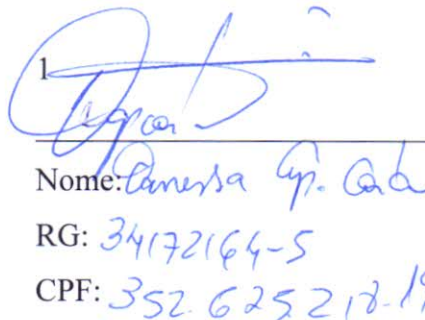 1
Nome: Vanessa Ap. Costa
RG: 34172164-5
CPF: 352.625.218-19